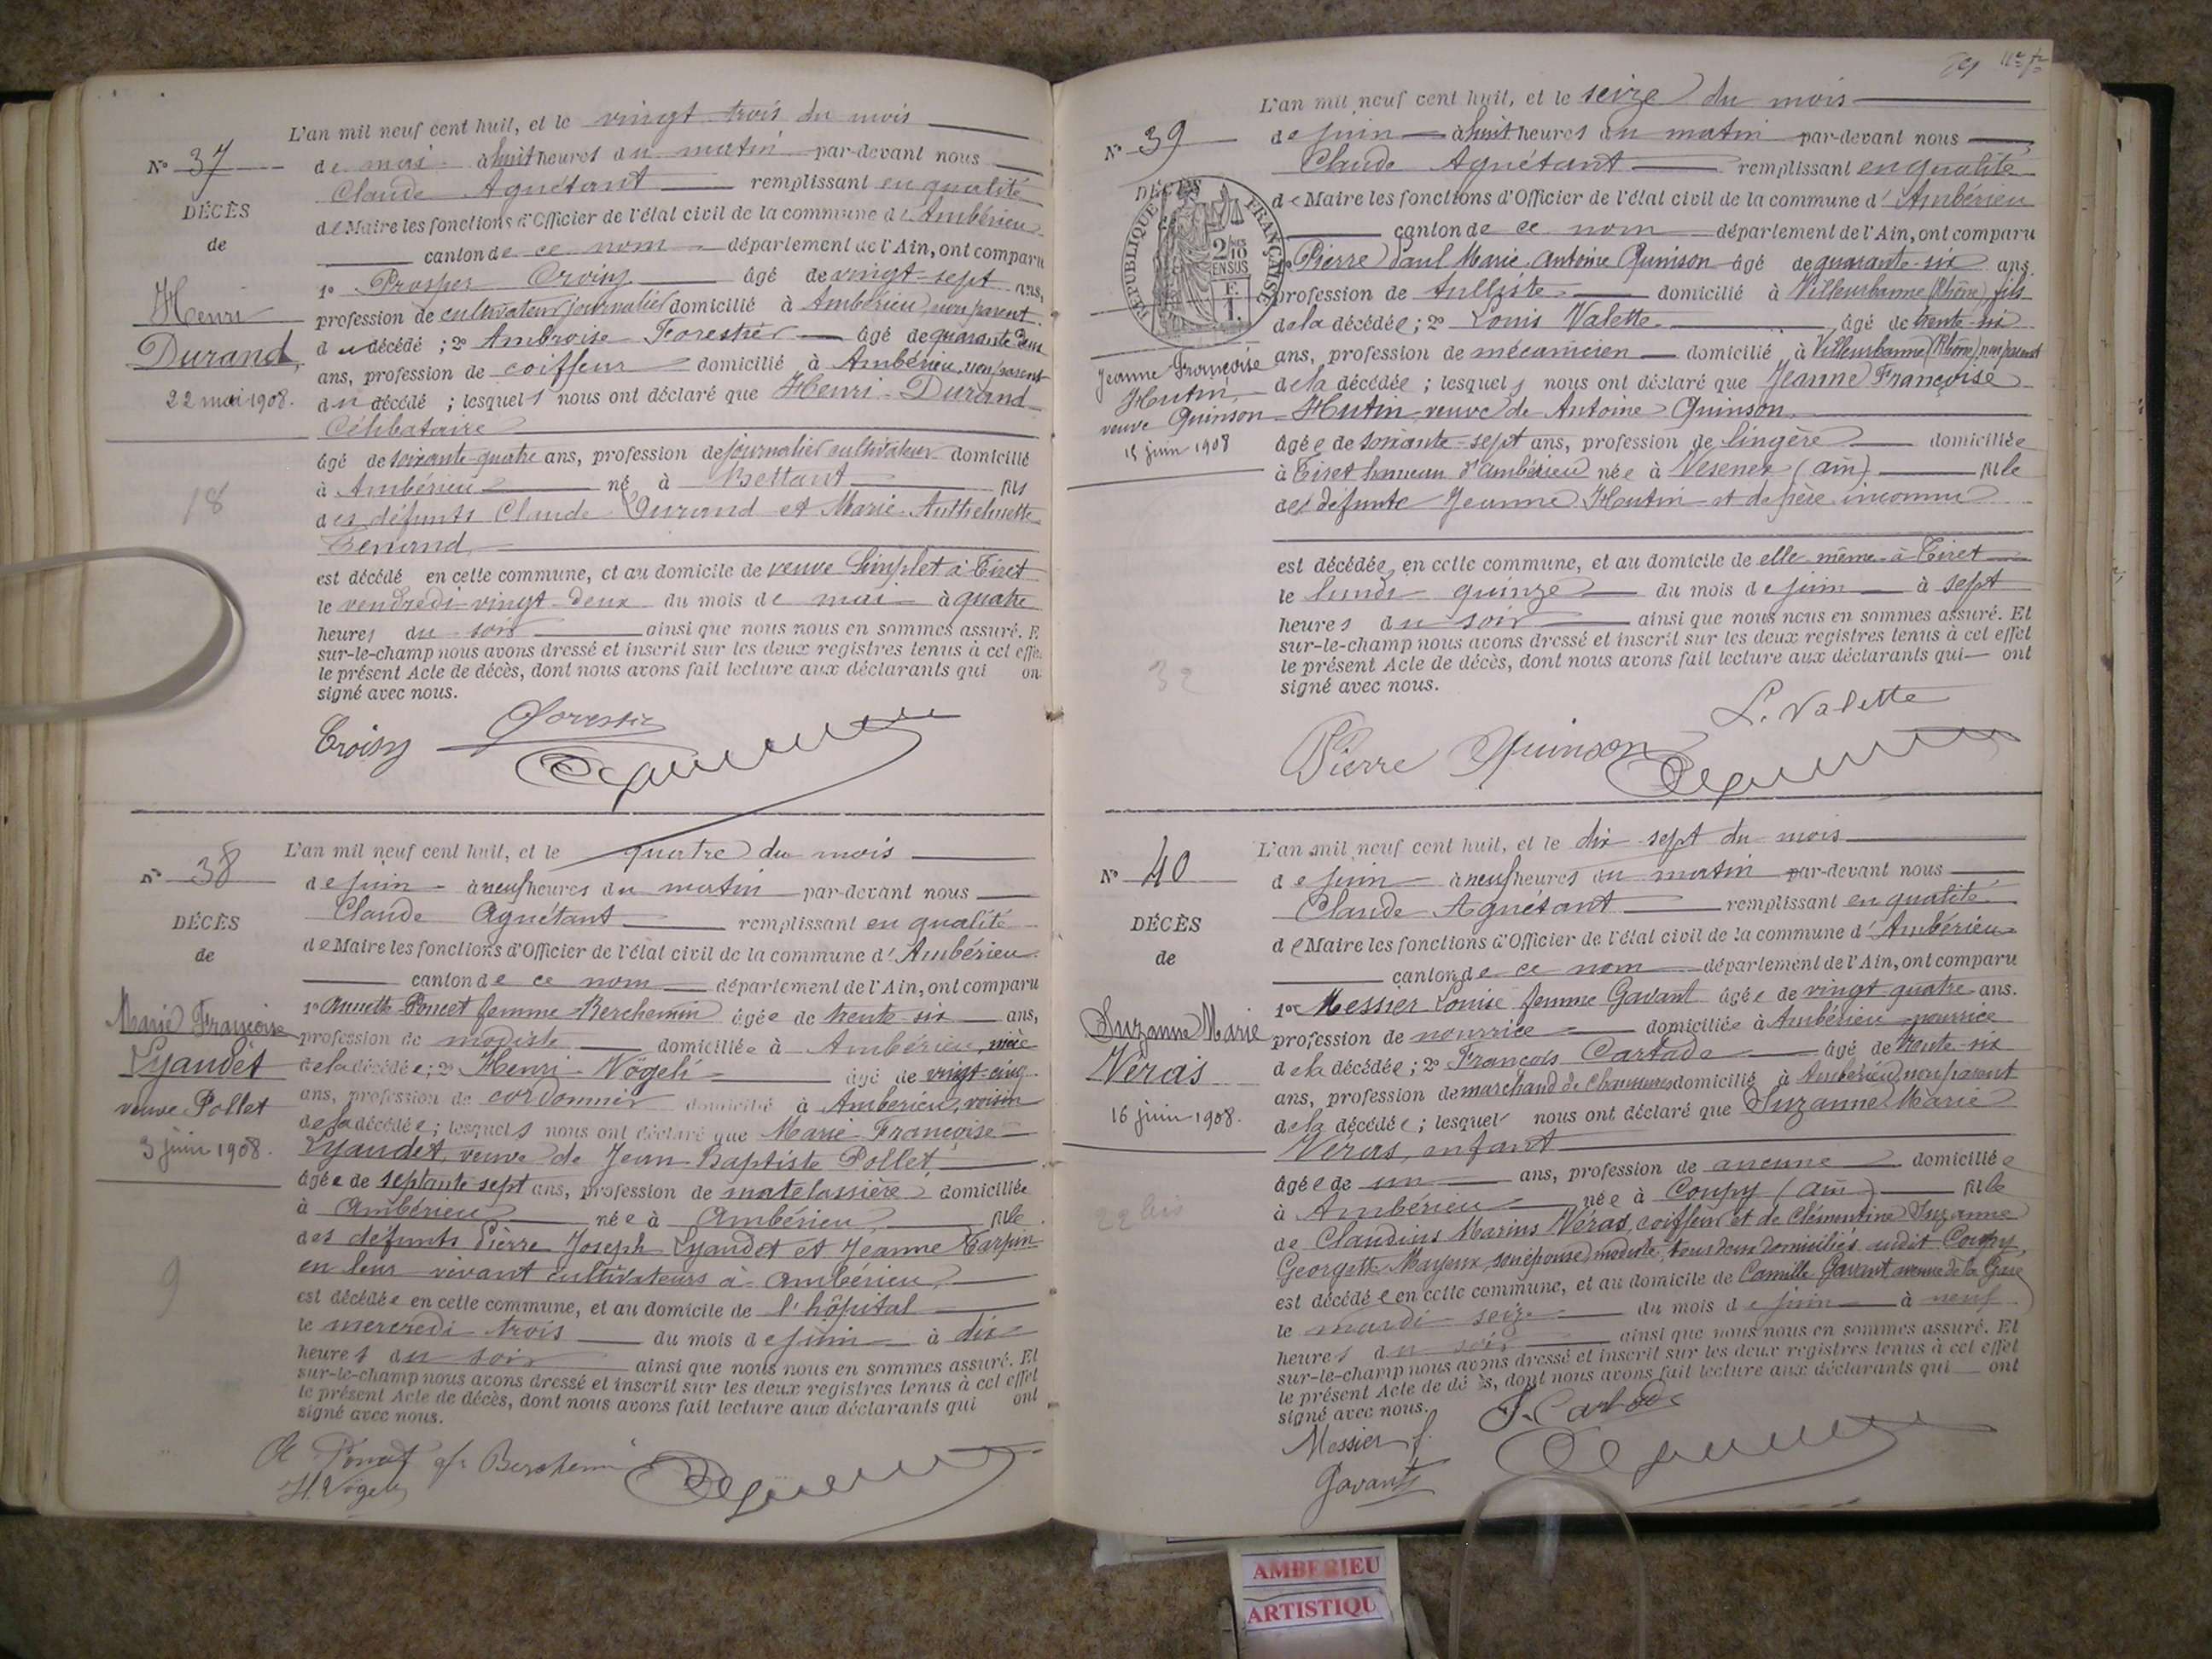 L'an mil neuf cent huit, et le vingt trois du mois
N° 37
de mai à huit heures du matin par-devant nous
Claude Aguétant remplissant en qualité
DÉCÈS
de Maire les fonctions d'Officier de l'état civil de la commune d'Ambérieu
de
canton de ce nom département de l'Ain, ont comparu
1° Prosper Croisy âgé de vingt-sept ans,
Henri
profession de cultivateur journalier domicilié à Ambérieu, non parent
Durand,
du décédé ; 2° Ambroise Forestier âgé de quarante deux
ans, profession de coiffeur domicilié à Ambérieu, non parent
22 mai 1908.
du décédé ; lesquels nous ont déclaré que Henri Durand
Célibataire
âgé de soixante-quatre ans, profession de journalier cultivateur domicilié
à Ambérieu né à Bettant fils
18
des défunts Claude Durand et Marie Anthelmette
Tenand
est décédé en cette commune, et au domicile de veuve Simplet à Tiret
le vendredi vingt-deux du mois de mai à quatre
heures du soir ainsi que nous nous en sommes assuré. E
sur-le-champ nous avons dressé et inscrit sur les deux registres tenus à cet effe
le présent Acte de décès, dont nous avons fait lecture aux déclarants qui on
signé avec nous.
Croisy Forestier
L'an mil neuf cent huit, et le quatre du mois
N° 38
de juin à neuf heures du matin par-devant nous
Claude Aguétant remplissant en qualité
DÉCÈS
de Maire les fonctions d'Officier de l'état civil de la commune d'Ambérieu
de
canton de ce nom département de l'Ain, ont comparu
1° Annette Poncet femme Berchemin âgée de trente six ans,
Marie Françoise
profession de modiste domiciliée à Ambérieu, nièce
Lyaudet
de la décédée ; 2° Henri Vögeli âgé de vingt-cinq
veuve Pollet
ans, profession de cordonnier domicilié à Ambérieu, voisin
3 juin 1908.
de la décédée ; lesquels nous ont déclaré que Marie Françoise
Lyaudet, veuve de Jean Baptiste Pollet
âgée de septante sept ans, profession de matelassière domiciliée
à Ambérieu née à Ambérieu fille
des défunts Pierre Joseph Lyaudet et Jeanne Tarpin
en leur vivant cultivateurs à Ambérieu
9
est décédée en cette commune, et au domicile de l'hôpital
le mercredi trois du mois de juin à dix
heures du soir ainsi que nous nous en sommes assuré. Et
sur-le-champ nous avons dressé et inscrit sur les deux registres tenus à cet effet
le présent Acte de décès, dont nous avons fait lecture aux déclarants qui ont
signé avec nous.
A Poncet fe Berchemin
H. Vögeli
L'an mil neuf cent huit, et le seize du mois
N° 39
de juin à huit heures du matin par-devant nous
Claude Aguétant remplissant en qualité
DÉCÈS
RÉPUBLIQUE FRANÇAISE
2 10 EN SUS
F. 1.
de Maire les fonctions d'Officier de l'état civil de la commune d'Ambérieu
canton de ce nom département de l'Ain, ont comparu
1° Pierre Paul Marie Antoine Quinson âgé de quarante-six ans.
profession de tulliste domicilié à Villeurbanne (Rhône) fils
de la décédée ; 2° Louis Valette âgé de trente-six
Jeanne Françoise
ans, profession de mécanicien domicilié à Villeurbanne (Rhône), non parent
Hutin,
de la décédée ; lesquels nous ont déclaré que Jeanne Françoise
veuve Quinson
Hutin veuve de Antoine Quinson
15 juin 1908
âgée de soixante-sept ans, profession de lingère domiciliée
à Tiret hameau d'Ambérieu née à Vesenex (Ain) fille
de défunte Jeanne Hutin et de père inconnu
est décédée, en cette commune, et au domicile de elle même à Tiret
le lundi quinze du mois de juin à sept
heures du soir ainsi que nous nous en sommes assuré. Et
sur-le-champ nous avons dressé et inscrit sur les deux registres tenus à cet effet
32
le présent Acte de décès, dont nous avons fait lecture aux déclarants qui ont
signé avec nous.
L. Valette
Pierre Quinson
L'an mil neuf cent huit, et le dix sept du mois
N° 40
de juin à neuf heures du matin par-devant nous
Claude Aguétant remplissant en qualité
DÉCÈS
de Maire les fonctions d'Officier de l'état civil de la commune d'Ambérieu
de
canton de ce nom département de l'Ain, ont comparu
1° Messier Louise femme Gavant âgée de vingt quatre ans.
Suzanne Marie
profession de nourrice domiciliée à Ambérieu nourrice
Véras
de la décédée ; 2° François Cartade âgé de trente-six
ans, profession de marchand de chaussures domicilié à Ambérieu, non parent
16 juin 1908.
de la décédée ; lesquels nous ont déclaré que Suzanne Marie
Véras, enfant
âgée de un ans, profession de aucune domiciliée
à Ambérieu née à Coupy (Ain) fille
22 bis
de Claudius Marius Véras, coiffeur et de Clémentine Suzanne
Georgette Mayeux son épouse, modiste, tous deux domiciliés audit Coupy,
est décédée en cette commune, et au domicile de Camille Gavant, avenue de la Gare
le mardi seize du mois de juin à neuf
heures du soir ainsi que nous nous en sommes assuré. Et
sur-le-champ nous avons dressé et inscrit sur les deux registres tenus à cet effet
le présent Acte de décès, dont nous avons fait lecture aux déclarants qui ont
signé avec nous.
F. Cartade
Messier f.
Gavant
AMBERIEU
ARTISTIQU